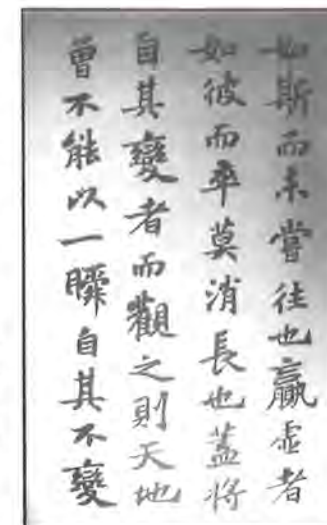 如斯而未嘗往也贏虛者
如彼而卒莫消長也蓋將
自其變者而觀之則天地
曾不能以一瞬自其不變